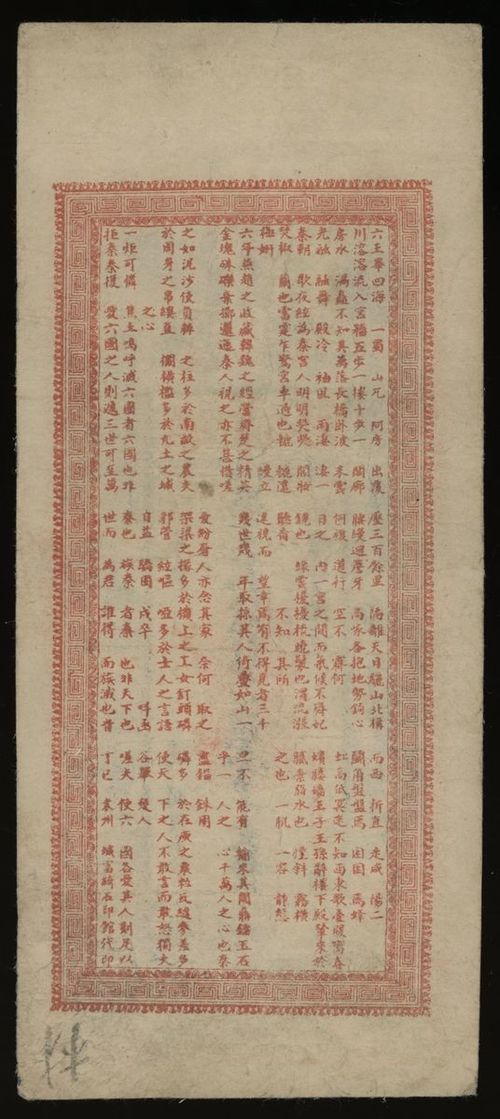 六王畢四海 一蜀 山兀 阿房 出覆 壓三百餘里 隔離天日驪山北構 而西 折直 走咸 陽二
川溶溶流入宮牆五步一樓十步一 閣廊 腰縵迴簷牙 高啄各抱地勢鈎心 鬭角盤盤焉 囷囷 焉蜂
房水 渦矗不知其萬落長橋卧波 未雲 何複 道行 空不 霽何 虹高低冥迷不知西東歌臺暖響春
光融 融舞 殿冷 袖風 雨凄 凄一 日之 內一宮之間而氣候不齊妃 嬪媵嬙王子王孫辭樓下殿輦來於
秦朝 歌夜絃為秦宮人明明熒熒 開妝 鏡也 綠雲擾擾梳曉鬟也渭流漲 膩棄脂水也 煙斜 霧橫
焚椒 蘭也雷霆乍驚宮車過也轆 轆遠 聽杳 不知 其所 之也 一肌 一容 盡態
極妍 縵立 遠視而 望幸焉有不得見者三十
六年燕趙之收藏韓魏之經營齊楚之精英 幾世幾 年取掠其人倚疊如山一 旦不 能有 輸來其間鼎鐺玉石
金塊珠礫棄擲邐迤秦人視之亦不甚惜嗟 乎一 人之 心千萬人之心也秦
愛紛奢人亦念其家 奈何 取之 盡錙 銖用
之如泥沙使負棟 之柱多於南畝之農夫 架梁之椽多於機上之工女釘頭磷 磷多 於在庾之粟粒瓦縫參差多
於周身之帛縷直 欄橫檻多於九土之城 郭管 絃嘔 啞多於士人之言語 使天 下之人不敢言而敢怒獨夫
之心 日益 驕固 戍卒 呌函 谷舉 楚人
一炬可憐 焦土嗚呼滅六國者六國也非 秦也 族秦 者秦 也非天下也 嗟夫 使六 國各愛其人則足以
拒秦秦復 愛六國之人則遞三世可至萬 世而 為君 誰得 而族滅也昔 丁巳 袁州 城富綺石印館代印